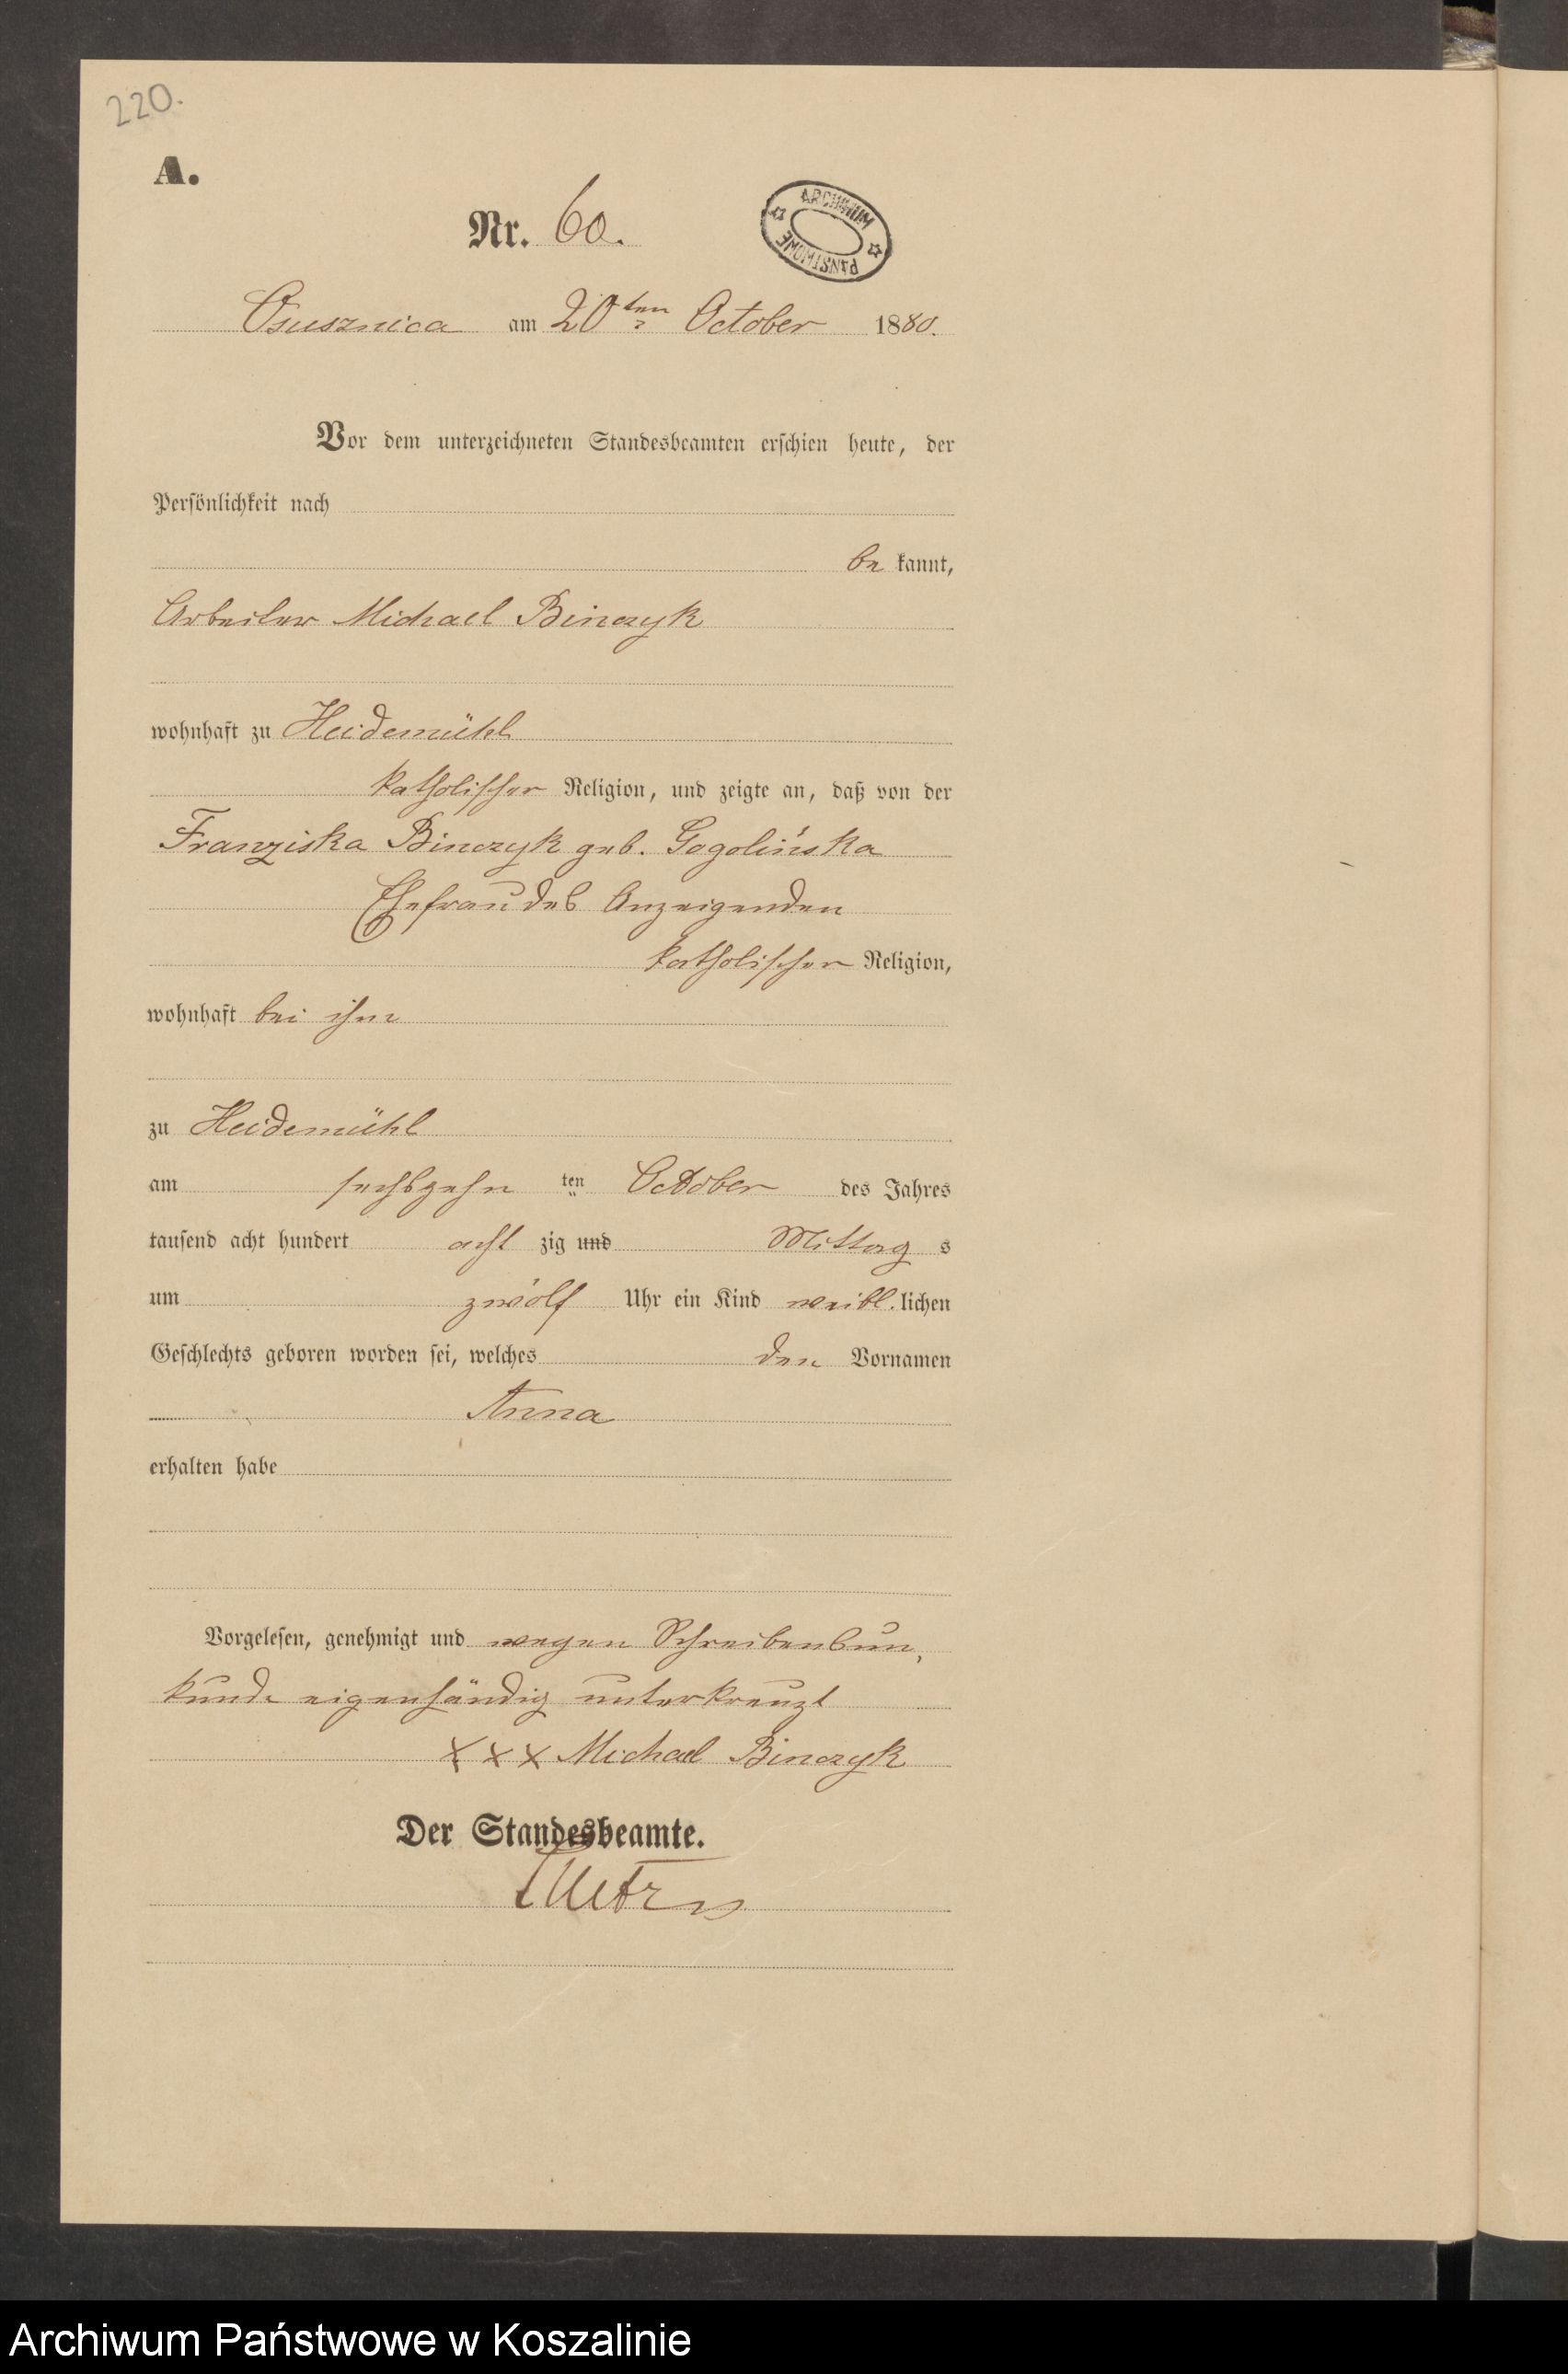 220.
A.
Nr. 60.
ARCHIWUM PAŃSTWOWE
Osusznica am 20ten October 1880.
Vor dem unterzeichneten Standesbeamten erschien heute, der
Persönlichkeit nach
be kannt,
Arbeiter Michael Binczyk
wohnhaft zu Heidemühl
katholischer Religion, und zeigte an, daß von der
Franziska Binczyk geb. Gogolińska
Ehefrau des Anzeigenden
katholischer Religion,
wohnhaft bei ihm
zu Heidemühl
am sechszehn ten October des Jahres
tausend acht hundert acht zig und Mittag s
um zwölf Uhr ein Kind weibl. lichen
Geschlechts geboren worden sei, welches den Vornamen
Anna
erhalten habe
Vorgelesen, genehmigt und wegen Schreibensun,
kunde eigenhändig unterkreuzt
XXX Michael Binczyk
Der Standesbeamte.
Archiwum Państwowe w Koszalinie